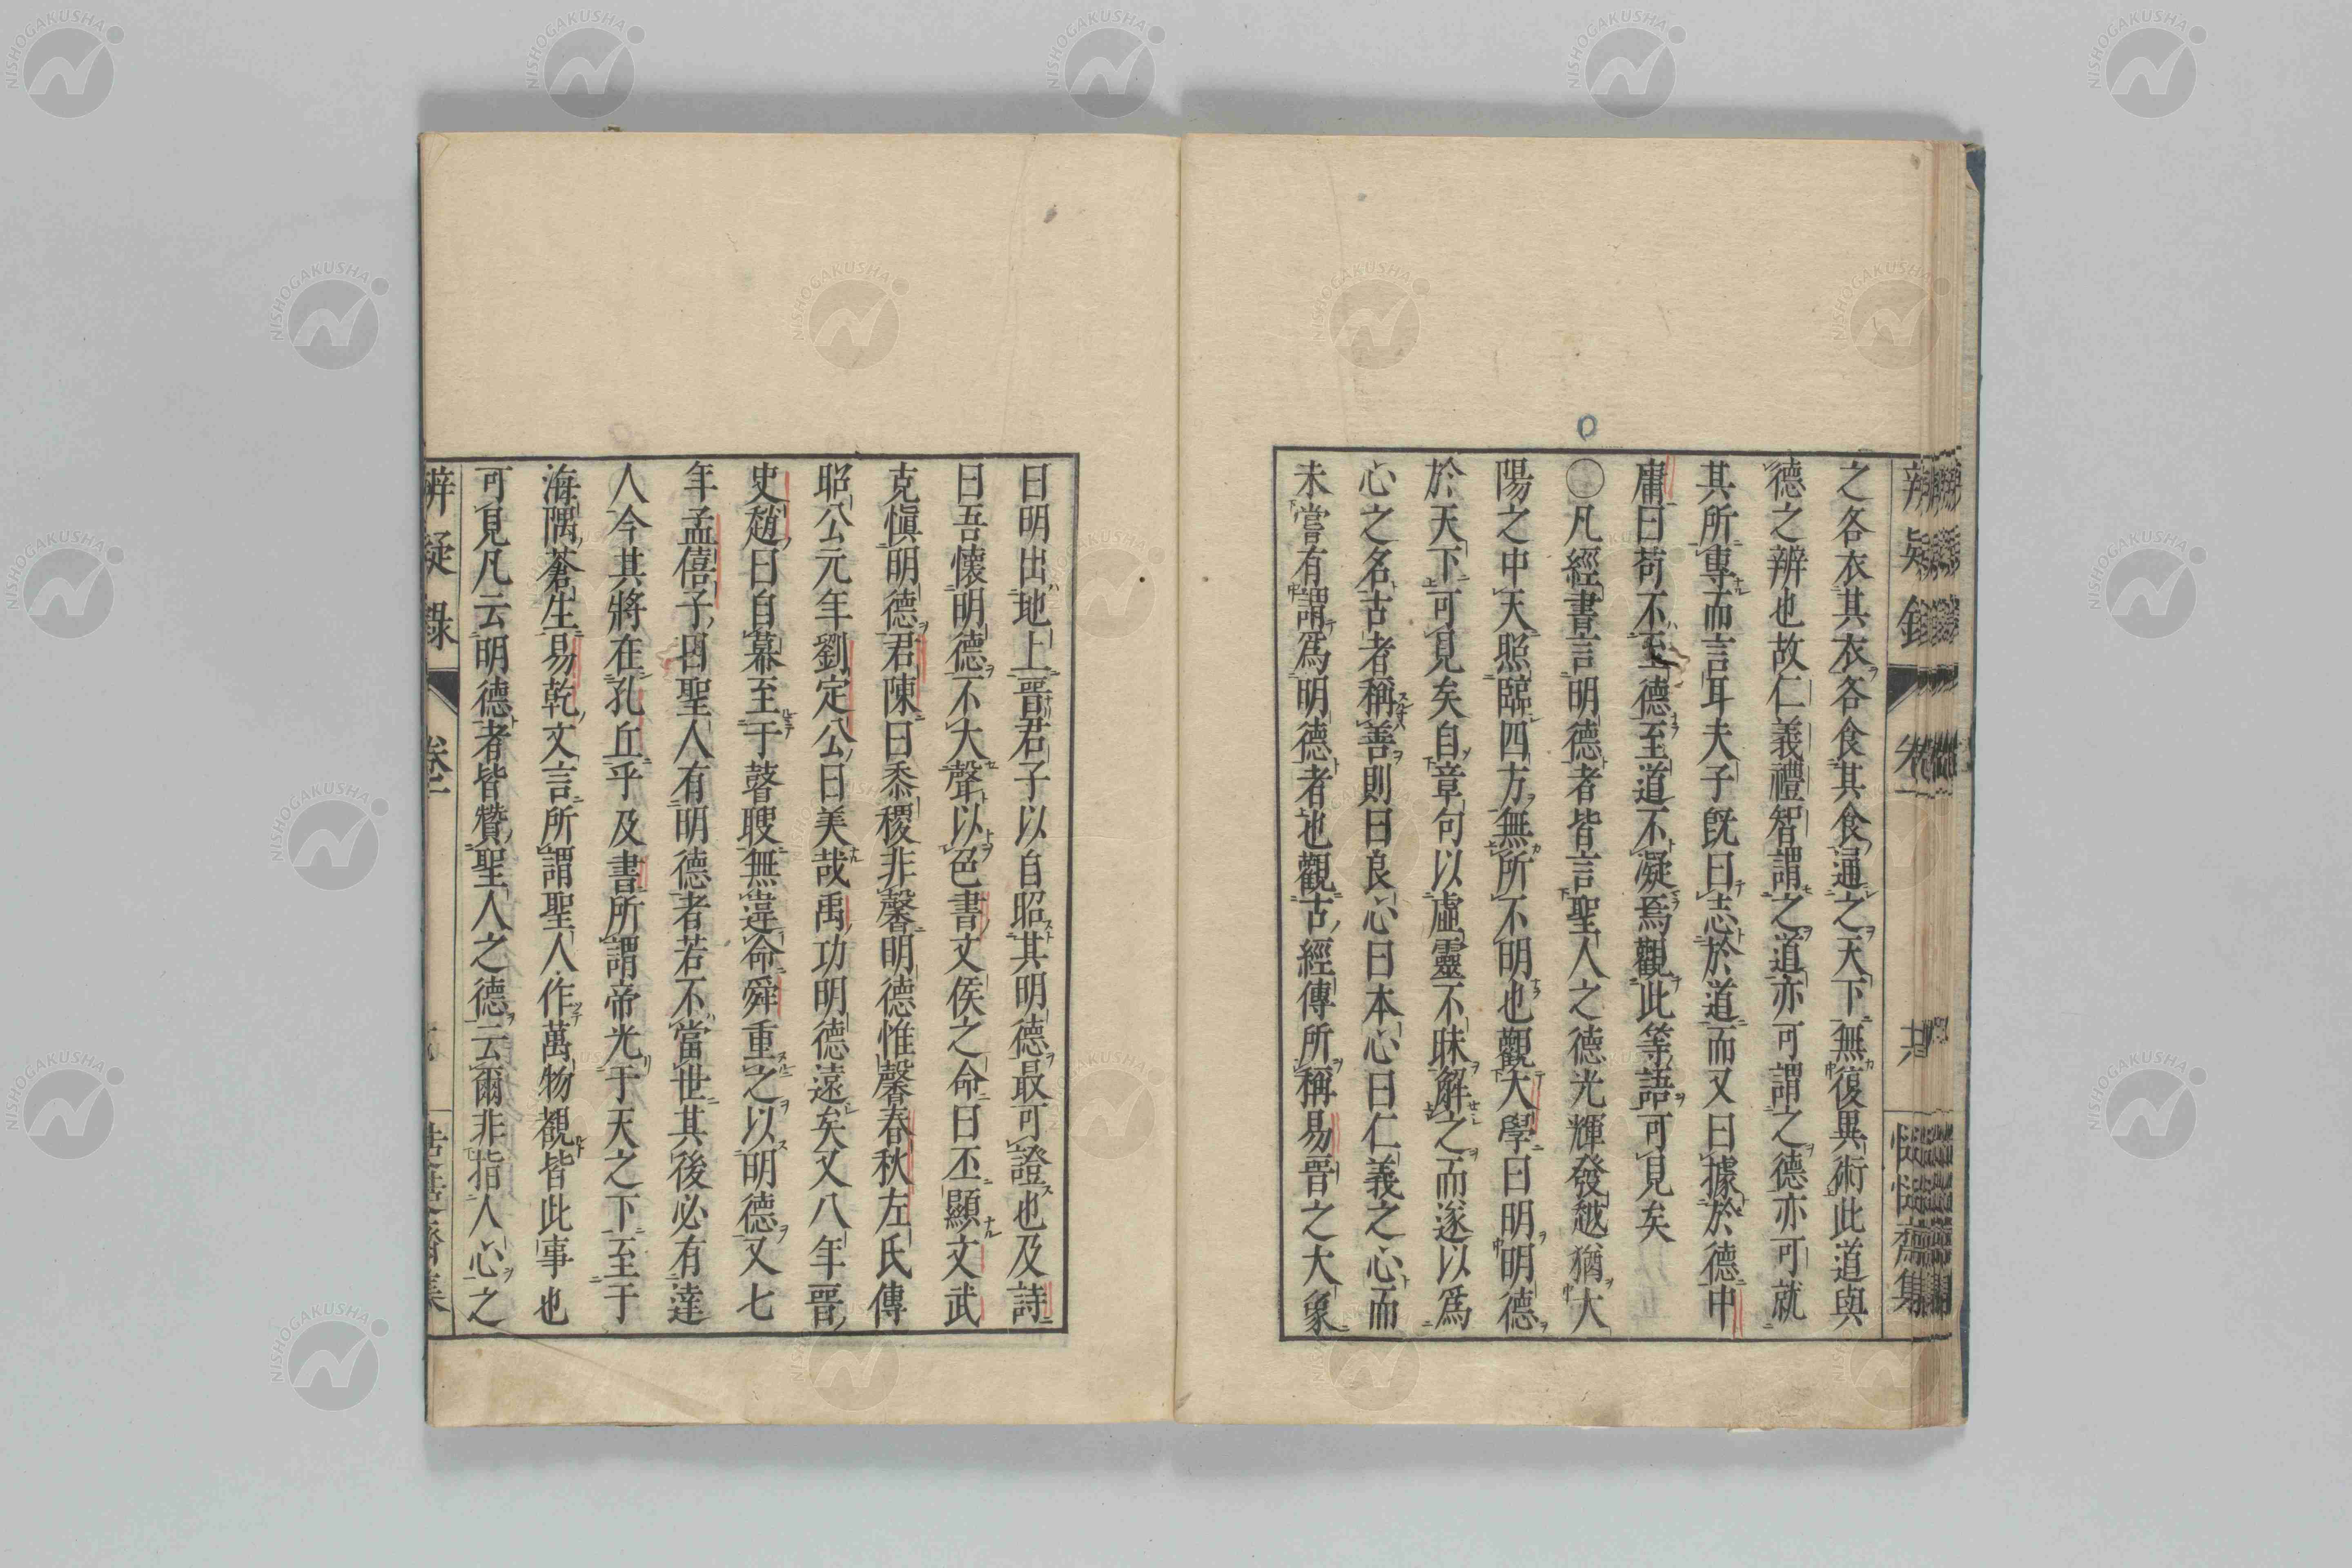 之各衣其衣各食其食通之天下無復異術此道與
德之辨也故仁義禮智謂之道亦可謂之德亦可就
其所專而言耳夫子既曰志於道而又曰據於德中
庸曰苟不至德至道不凝焉觀此等語可見矣
〇凡經書言明德者皆言聖人之德光輝發越猶大
陽之中天照臨四方無所不明也觀大學曰明明德
於天下可見矣自章句以虛靈不昧解之而遂以爲
心之名古者稱善則曰良心曰本心曰仁義之心而
未嘗有謂爲明德者也觀古經傳所稱易晋之大象
曰明出地上晋君子以自昭其明德最可證也及詩
曰吾懷明德不大聲以色書文侯之命曰丕顯文武
克愼明德君陳曰黍稷非馨明德惟馨春秋左氏傳
昭公元年劉定公曰美哉禹功明德遠矣又八年晋
史趙曰自幕至于瞽瞍無違命舜重之以明德又七
年孟僖子曰聖人有明德者若不當世其後必有達
人今其將在孔丘乎及書所謂帝光于天之下至于
海隅蒼生易乾文言所謂聖人作萬物覩皆此事也
可見凡云明德者皆贊聖人之德云爾非指人心之
辨疑錄
卷一
NISHOGAKUSHA